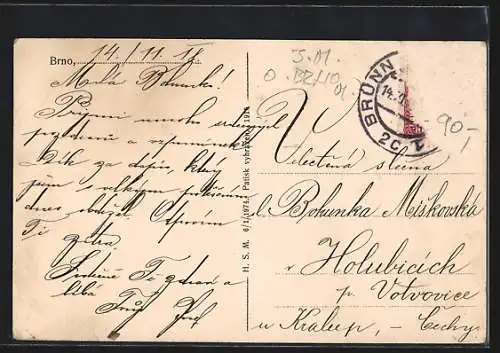 Brno, 14./11. 18.
Milá Bohunko!
Přijmi mnoho srdečných
pozdravů a vzpomínek.
Dík za dopis, který
jsem s velkým potěšením
dnes obdržel.
Ti zítra.
Srdečně Tě zdraví a
líbá
Tvůj
H. S. M. 6/1/1974. Patisk vyhrazen. 1911
S. 01.
O. BRNO
01.
BRÜNN
14.
2c
90-
Velectěná slečna
Bohunka Miškovská
v Holubicích
p. Votvovice
u Kralup, - Čechy